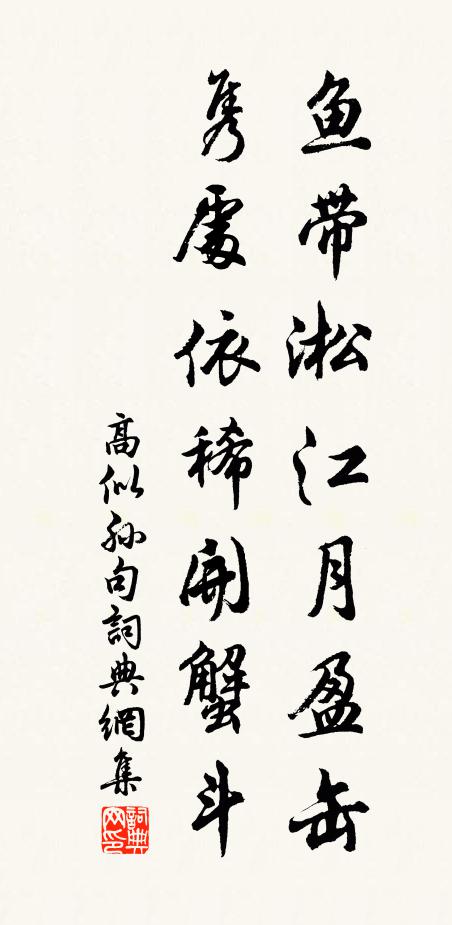 鱼带淞江月盈缶
隽處依稀開蟹斗
高似孙句詞典網集
詞典网印